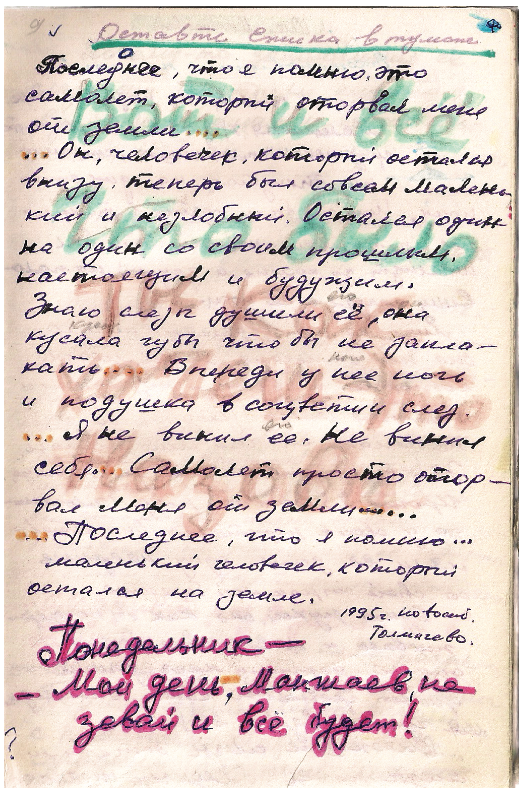 Оставте ёжика в тумане
Последнее, что я помню, это
самолет, который оторвал меня
от земли....
... Он, человечек, который остался
внизу, теперь был совсем малень-
кий и незлобный. Остался один
на один со своим прошлым,
настоящим и будужим.
Знаю слезы душили её, она
кусала губы что бы не запла-
кать.... Впереди у нее ночь
и подушка в сочувствии слез.
... Я не винил ее. Не винил
себя... Самолет просто отор-
вал меня от земли.....
... Последнее, что я помню...
маленький человечек, который
остался на земле.
1995г. новосиб.
Толмачево.
Понедельник —
— Мой день, не
зевай и всё будет!
Вот и всё
что было
?